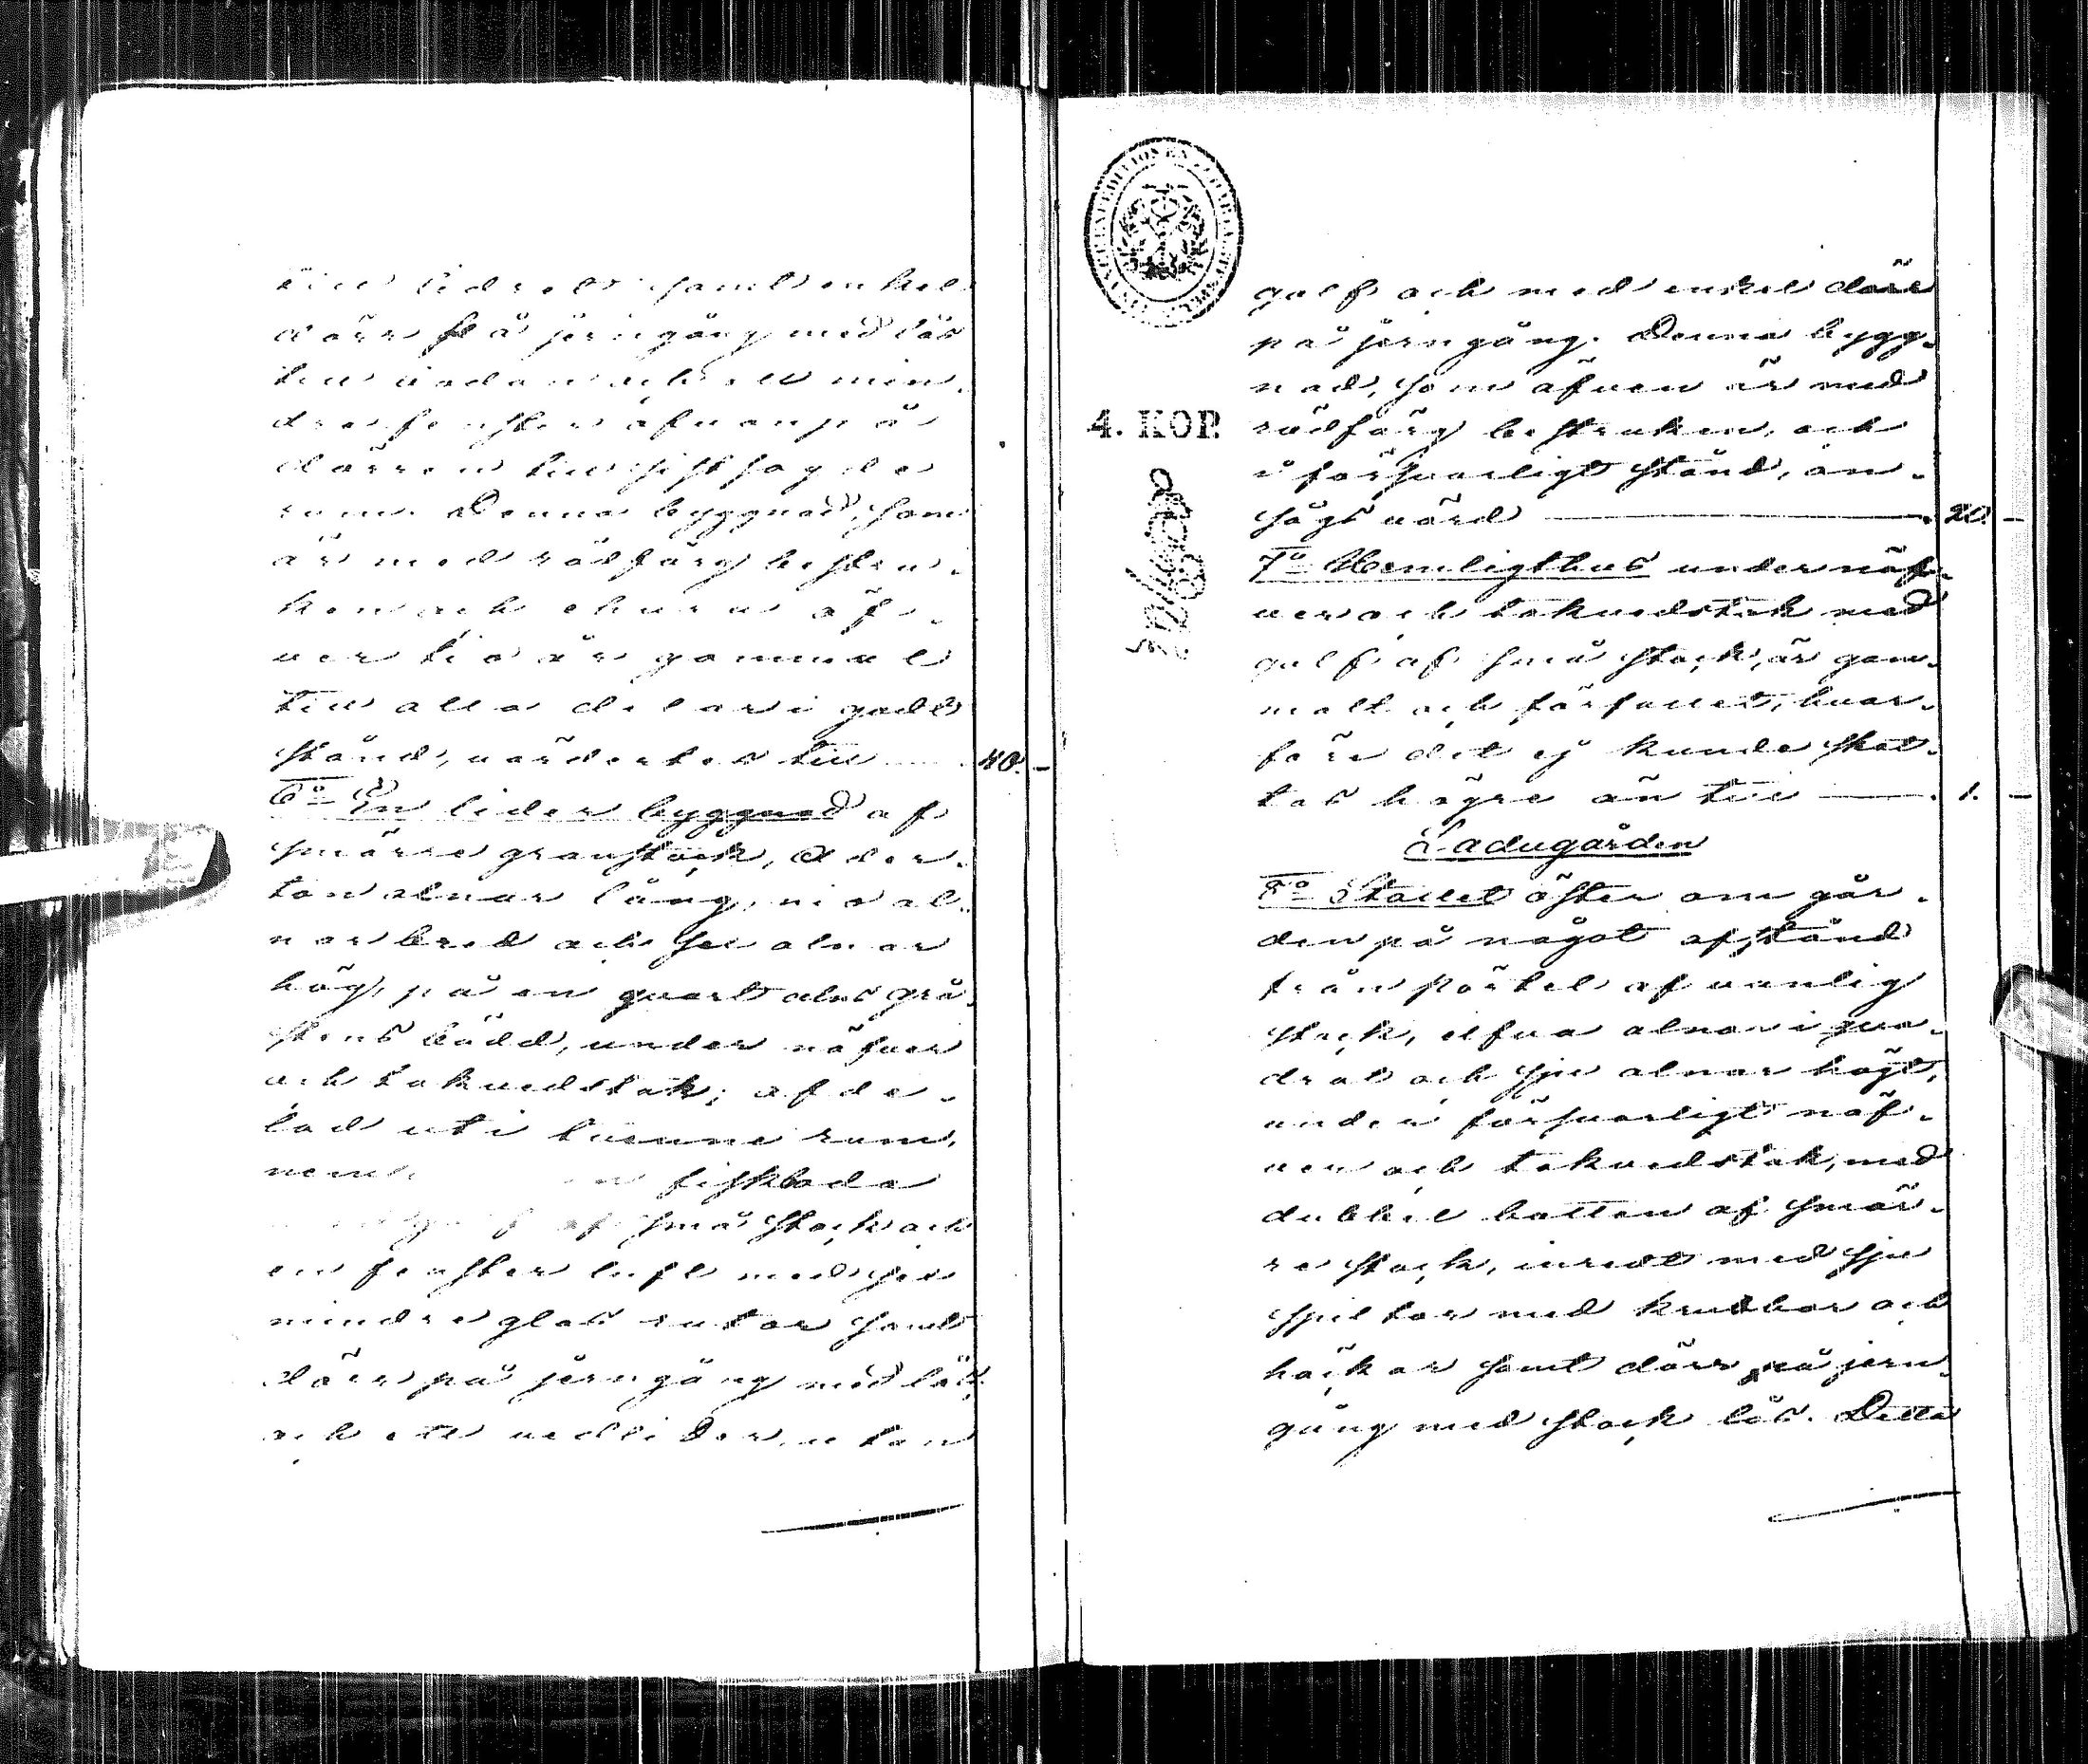 till lidret samt enkel
dörr på jerngång med lås
till boden och ett min-
dre fenster ofvanpå
dörren till sistsagde
rum. Denna byggnad, som
är med rödfärg bestru-
ken och ehuru öf-
ver tio år gammal
till alla delar i godt
stånd, värderades till 40. -
6:o En lider byggnad af
smärre granstock, 
ton alnar lång, nio al-
nar bred och sju alnar
hög, på en qvart alns grå-
stens bädd, under näfver
och takvedstak; afde-
lad uti tvenne rum,
neml. en fiskboda
af små stock och
en fenster luft med sex
mindre glas rutor samt
dörr på jerngång med lås
och ett vedlider utan
golf och med enkel dörr
på jerngång. Denna bygg-
nad, som äfven är med
4. KOP. rödfärg bestruken och
i försvarligt stånd, an-
sågs värd 20. -
7:o Hemligthus under näf-
ver och takvedstak med
golf af små stock, är gam-
malt och förfallet, hvar-
före det ej kunde skat-
tas högre än till 1. -
Ladugården
8:o Stallet öster om går-
den på något afstånd
från pörtet af vanlig
stock, elfva alnar i qva-
drat och sju alnar högt,
under försvarligt näf-
ver och takvedstak, med
dubbel botten af smär-
re stock, inredt med sju
spiltor med krubbor och
häckar samt dörr på jern-
gång med stock lås. Detta